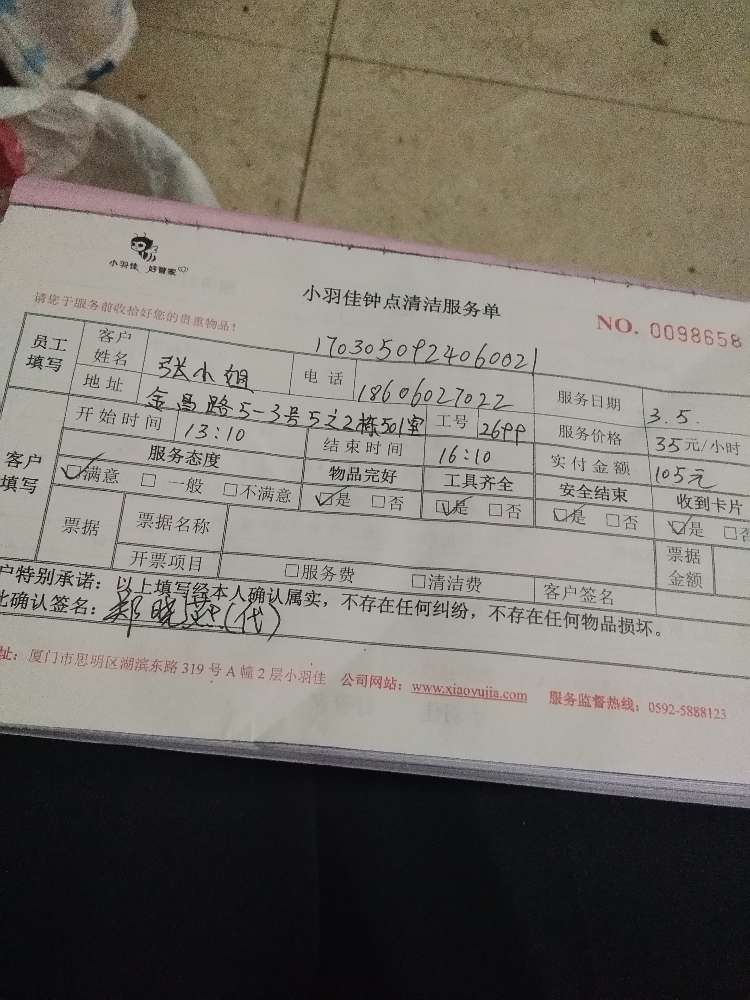 小羽佳 好管家
小羽佳钟点清洁服务单
请您于服务前收拾好您的贵重物品！
NO. 0098658
1703050924060021
员工填写 客户姓名 张小姐 电话 18606027022 服务日期 3.5.
地址 金昌路5-3号5之2栋501室 工号 2699 服务价格 35元/小时
客户填写 开始时间 13:10 结束时间 16:10 实付金额 105元
服务态度 物品完好 工具齐全 安全结束 收到卡片
☑满意 □一般 □不满意 ☑是 □否 ☑是 □否 ☑是 □否 ☑是 □否
票据 票据名称 票据金额
开票项目 □服务费 □清洁费 客户签名
户特别承诺：以上填写经本人确认属实，不存在任何纠纷，不存在任何物品损坏。
此确认签名：郑晓燕(代)
址：厦门市思明区湖滨东路 319 号 A 幢 2 层小羽佳 公司网站：www.xiaoyujia.com 服务监督热线：0592-5888123